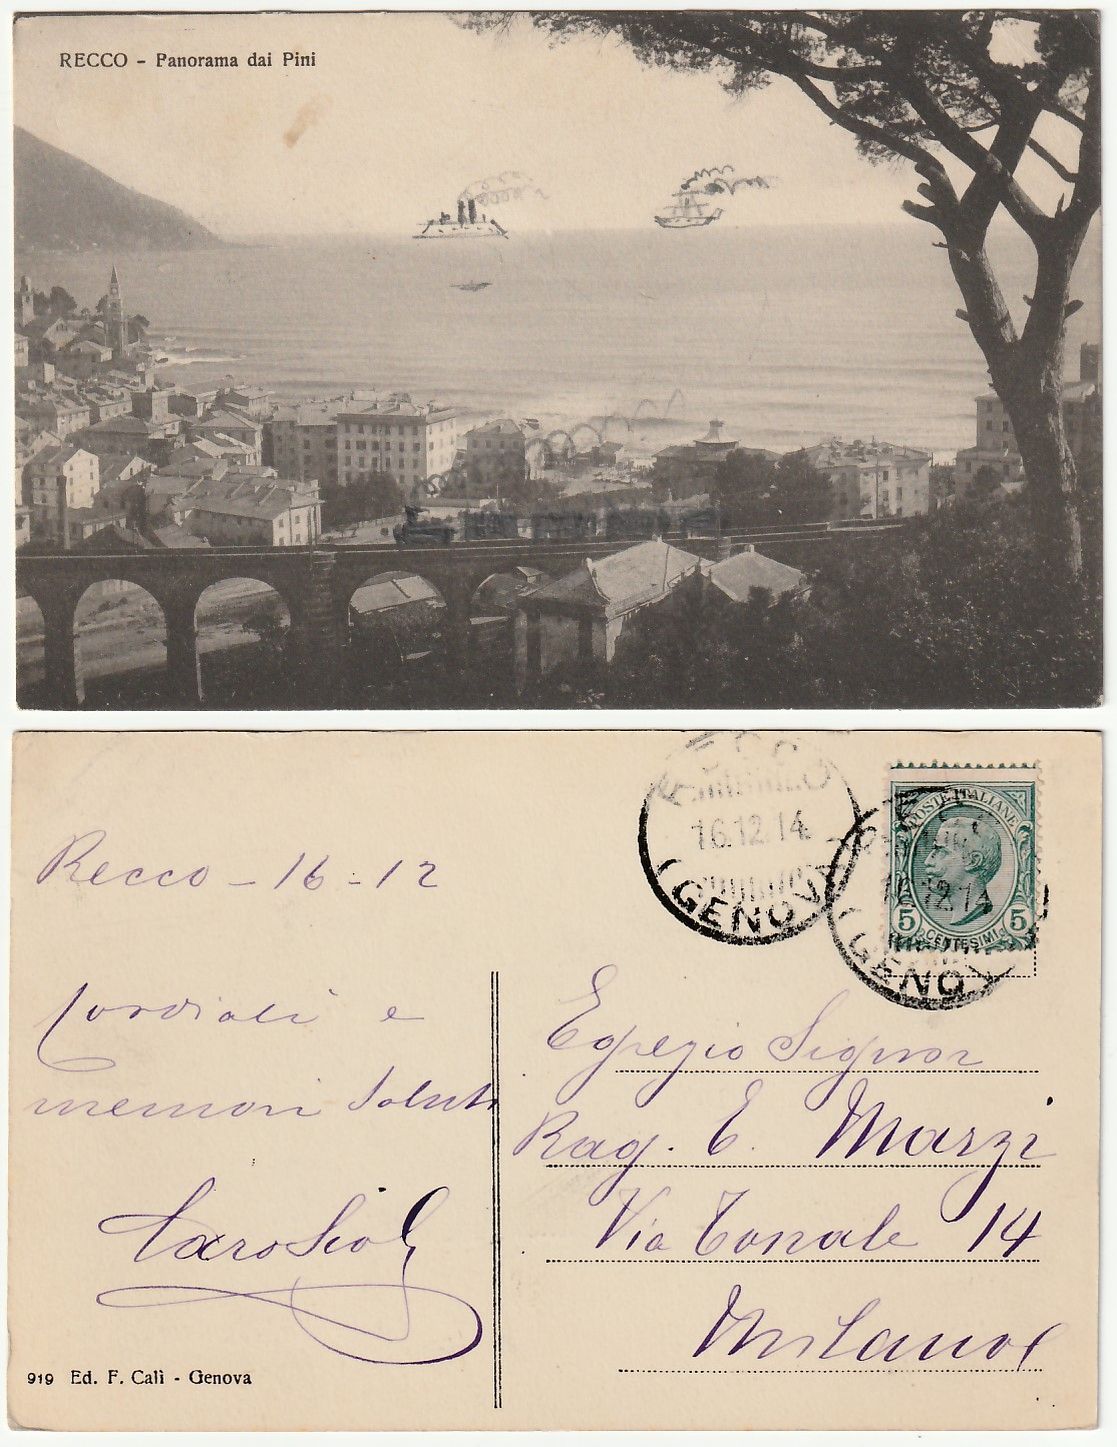 RECCO - Panorama dai Pini
16.12.14
(GENOV
POSTE ITALIANE
5 CENTESIMI 5
12.14
(GENOV
Recco - 16 - 12
Cordiali e
memori saluti
Egregio Signor
Rag. E. Marzi
Via Tonale 14
Milano
919 Ed. F. Calì - Genova